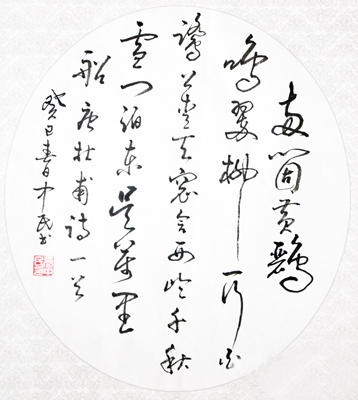 两箇黄鸝
鳴翠柳一行白
鷺上青天窗含西岭千秋
雪门泊东吴萬里
船唐杜甫诗一首
癸巳春日民书